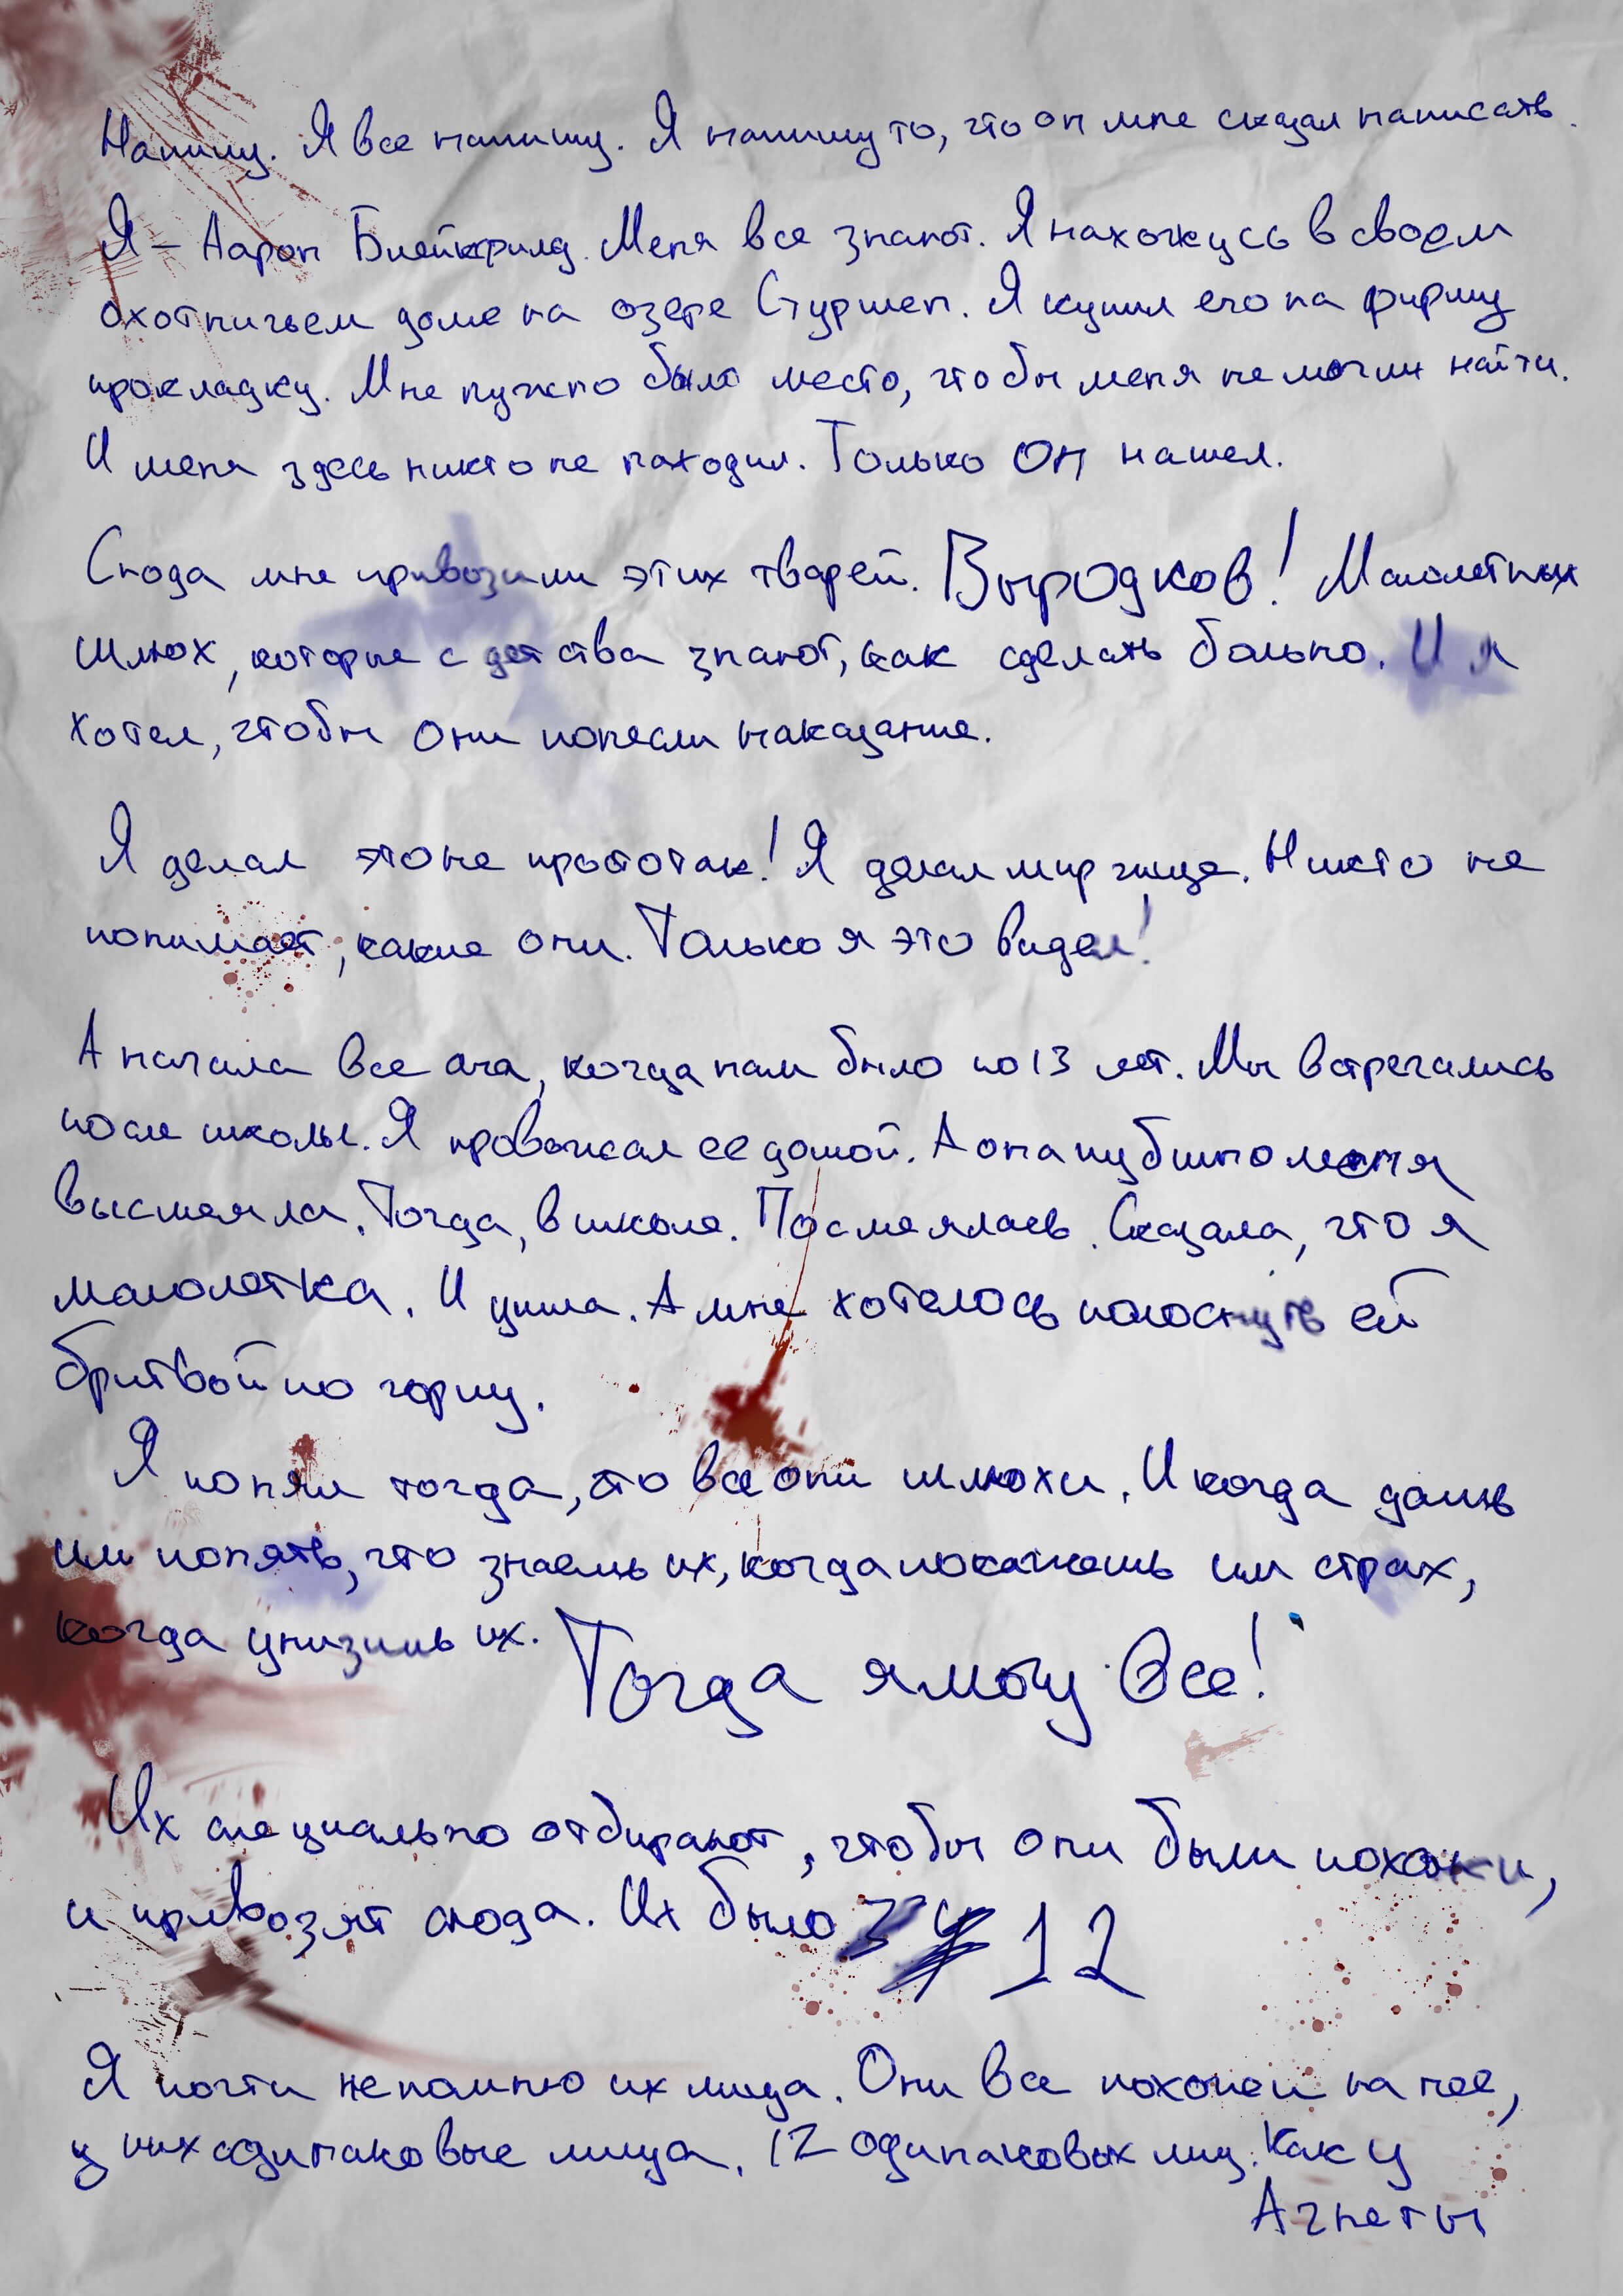 Напишу. Я все напишу. Я напишу то, что он мне сказал написать.
Я – Аарон Блейкфилд. Меня все знают. Я нахожусь в своем
охотничьем доме на озере Стуршен. Я купил его на фирму
прокладку. Мне нужно было место, чтобы меня не могли найти.
И меня здесь никто не находил. Только ОН нашел.
Сюда мне привозили этих тварей. Выродков! Малолетных
шлюх, которые с детства знают, как сделать больно. И я
хотел, чтобы они понесли наказание.
Я делал это не просто так! Я делал мир чище. Никто не
понимает, какие они. Только я это видел!
А начала все она, когда нам было по 13 лет. Мы встречались
после школы. Я провожал ее домой. А она публично меня
высмеяла. Тогда, в школе. Посмеялась. Сказала, что я
малолетка. И ушла. А мне хотелось полоснуть ей
бритвой по горлу.
Я понял тогда, что все они шлюхи. И когда даешь
им понять, что знаешь их, когда покажешь им страх,
когда унизишь их. Тогда я могу Все!
Их специально отбирают, чтобы они были похожи,
и привозят сюда. Их было 12
Я почти не помню их лица. Они все похожи на нее,
у них одинаковые лица. 12 одинаковых лиц. Как у
Агнеты